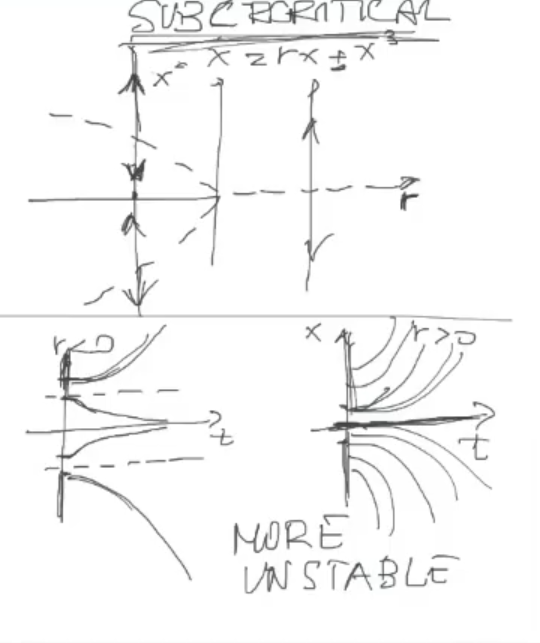 SUBCRCRITICAL
x x = rx ± x³
r
r<0
x r>0
t
t
MORE
UNSTABLE